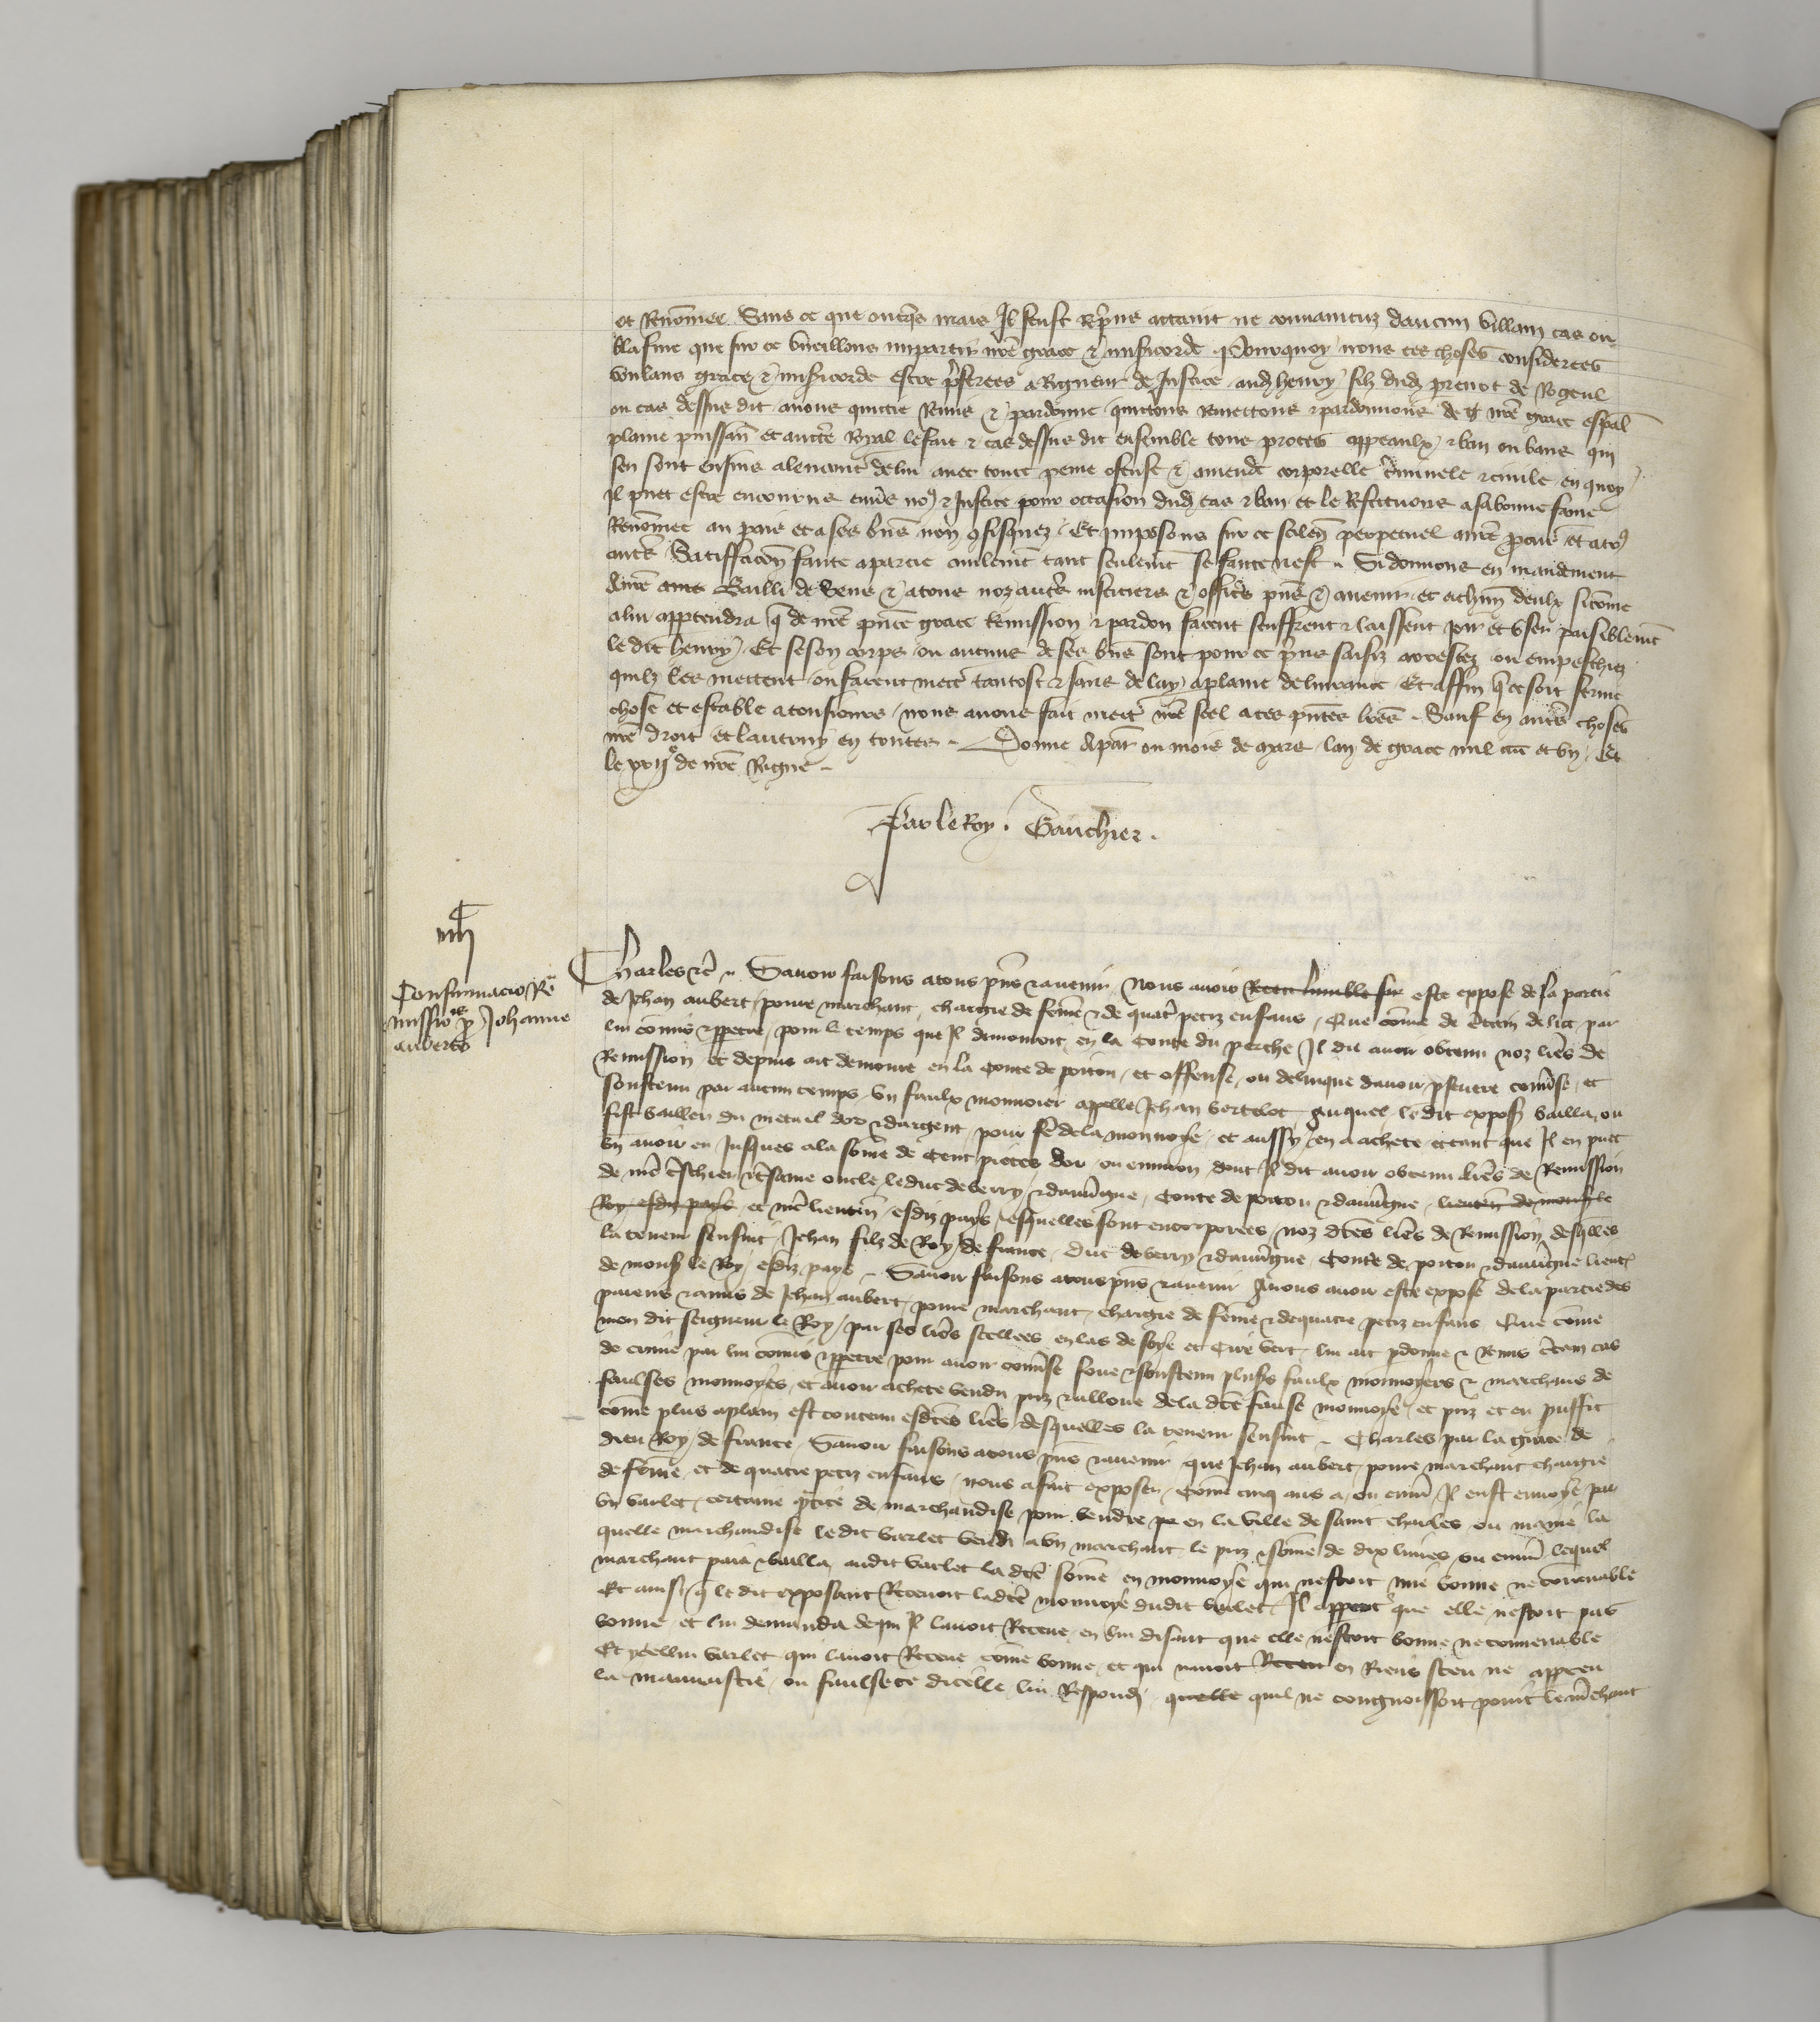 et Renõmee Sans ce que oncq̃s mais Il feust Rep̃ns attaint ne convaincuz daucun villain cas ou
blasme que sur ce vueillons impartir nr̃e grace & misericorde Pourquoy nous ces choses considerees
voulans grace & misericorde estre p̃ferees a Rigueur de Justice aud henry filz dud prevot de Nogeul
ou cas dessus dit avons quictie Remis & pardonne quictons Remettons & pardonnons de nr̃e grace esp̃al
plaine puissan̄ et auctẽ Royal le fait & cas dessus dit ensemble tous proces appeaulx & ban ou bans qui
sen sont ensuis alencont̃ de lui avec toute peine offense & amende corporelle c̃minele & civile en quoy
Il puet estre encourus env̄s no9 & Justice pour occasion dud cas & ban et le Restituons a sa bonne fame
Renõmee au pais et a ses biẽs non 9fisquez Et imposons sur ce scilen̄ perpetuel a nr̃e p̃cur̃ et a to9
autr̃s Satisfaccõn faicte a partie civilem̃t tant seulem̃t se faicte nest Si donnons en mandement
A nr̃e Bailli de Sens & a tous noz autr̃s justiciers & offic̃rs p̃ns & avenir et a ch̃un deulx si cõme
a lui appartendra q̃ de nr̃e p̃nte grace Remission & pardon facent seuffrent & laissent joir et user paisiblem̃t
le dit henry Et se son corps ou aucuns de ses biẽs sont pour ce p̃ns saisiz arrestez ou empeschiez
quilz les mettent ou facent mett̃ tantost & sans delay a plaine delivrance Et affin q̃ ce soit ferme
chose et estable a tousjours nous avons fait mett̃ nr̃e seel a ces p̃ntes lr̃es Sauf en autr̃s choses
nr̃e droit et lautruy en toutes Donne A par̃ ou mois de mars lan de grace mil cccc et un Et
le xxije de nr̃e Regne
Par le Roy. Gauchier.
iiijc
Confirmacio Re
missiois p̃ Johanne
auberto
Charles &c̃ Savoir faisons a tous p̃ns & avenir Nous avoir Receu lumble su este expose de la partie
de Jehan aubert povre marchant chargie de fem̃e & de quatr̃ petiz enfans Que cõme de c̃tain delict par
lui cõmis & ppetre pour le temps que Il demouroit en la Conte du perche Il dit avoir obtenu noz lr̃es de
Remission et depuis ait demoure en la Conte de poitou et offense ou delinque davoir sceutre cõv̄se et
soustenu par aucun temps un faulx monnoier appelle Jehan bertelot auquel le dit expos̃ bailla ou
fist bailler du metail dor & dargent pour fẽ de la monnoye et aussy en a achete et tant que Il en puet
bn̄ avoir eu Jusques a la sõme de Cent pieces dor ou environ dont Il dit avoir obtenu lr̃es de Remission
de nr̃e t̃schier & t̃same oncle le duc de berry & dauṽgne Conte de poitou & dauṽgne lieuten̄ de mons̃ le
Roy esdiz pays et nr̃e lieuten̄ esdiz pays esquelles sont encorporees noz dtẽs lr̃es de Remission desq̃lles
la teneur sensuit Jehan filz de Roy de france Duc de berry & dauṽgne Conte de poitou & dauṽgne lieut̃
de mons̃ le Roy esdiz pays Savoir faisons a tous p̃ns & avenir A nous avoir este expose de la partie des
parens & amis de Jehan aubert povre marchant chargie de fem̃e & de quatre petiz enfans Que cõme
mon dit seigneur le Roy par ses lr̃es seellees en las de soye et Cire vert lui ait p̃donne & Remis c̃tain cas
de crime par lui cõmis & ppetre pour avoir cõv̄se sceu & soustenu plusr̃s faulx monnoyers & marchans de
faulses monnoyes et avoir achete vendu priz & alloue de la dtẽ faulse monnoye et priz et eu puffit
cõme plus aplain est contenu esdtẽs lr̃es desquelles la teneur sensuit Charles par la grace de
dieu Roy de france Savoir faisons a tous p̃ns & avenir que Jehan aubert povre marchant chargie
de fem̃e et de quatre petiz enfans nous a fait exposer Cõme cinq ans a ou envir̃ Il eust envoye par
un varlet certaine p̃tie de marchandise pour vendre en la ville de saint charles ou maine la
quelle marchandise le dit varlet vendi a un marchant le priz & sõme de dix livres ou envir̃ lequel
marchant paia & bailla audit varlet la dtẽ sõme en monnoye qui nestoit mie bonne ne convenable
Et ainsi q̃ le dit exposant Recevoit ladtẽ monnoye dudit varlet Il apperc̃ que elle nestoit pas
bonne et lui demanda de qui Il lavoit Receue en lui disant que elle nestoit bonne ne convenable
Et ycellui varlet qui lavoit Receue cõme bonne et qui navoit Receu en Riens sceu ne apperceu
la mauvaistie ou faulsete dicelle lui Respondi quelle quil ne congnoissoit point le m̃chant